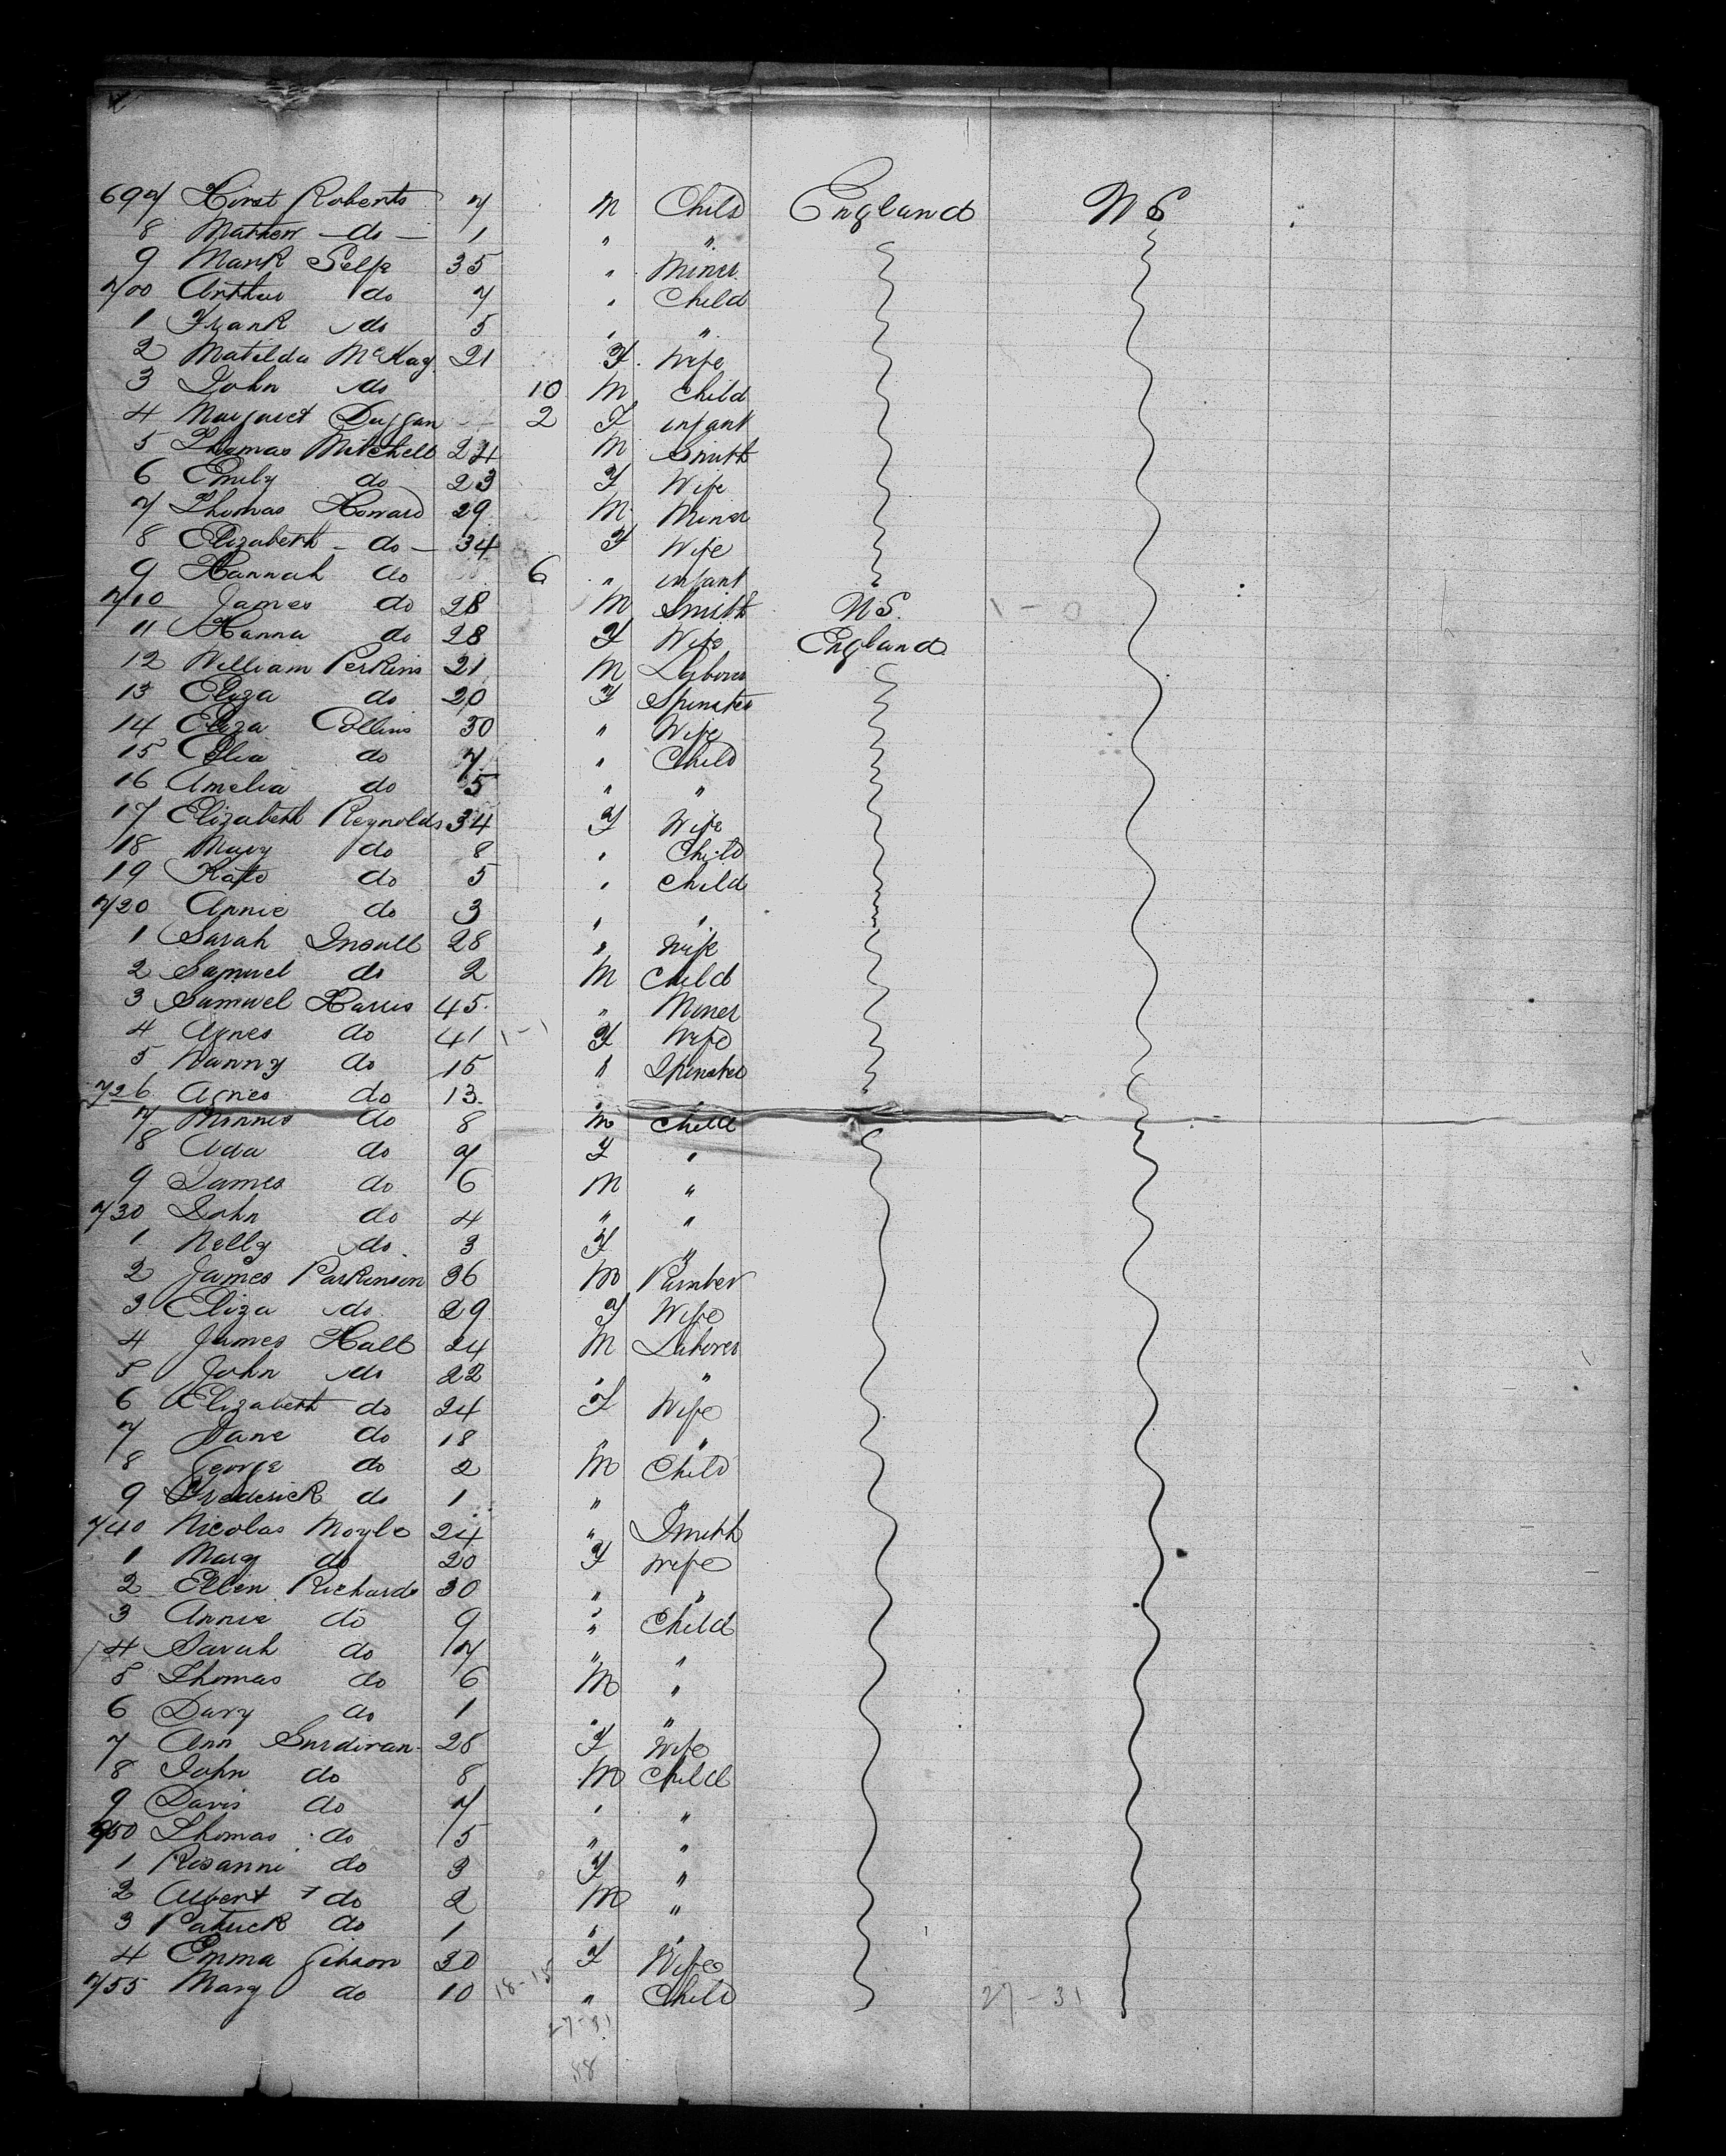 697 Hirst Roberts 7 M Child England U S
8 Mathew - do - 1 " "
9 Mark Selfe 35 " Miner
700 Arthur do 7 " Child
1 Frank do 5 " "
2 Matilda McKay 21 F Wife
3 John do 10 M Child
4 Margaret Duggan 2 F infant
5 Thomas Mitchell 24 M Smith
6 Emily do 23 F Wife
7 Thomas Howard 29 M Miner
8 Elizabeth - do - 34 F Wife
9 Hannah do 6 " infant
710 James do 28 M Smith U S.
11 Hanna do 28 F Wife England
12 William Perkins 21 M Laborer
13 Eliza do 20 F Spinster
14 Eliza Collins 30 " Wife
15 do 7 " Child
16 Amelia do 5 " "
17 Elizabeth Reynolds 34 F Wife
18 Mary do 8 " Child
19 Kate do 5 " Child
720 Annie do 3 " "
1 Sarah Insull 28 " Wife
2 Samuel do 2 M Child
3 Samuel Harris 45 " Miner
4 Agnes do 41 F Wife
5 Nanny do 15 " Spinster
726 Agnes do 13 " "
7 Minnie do 8 M Child
8 Ada do 7 F "
9 James do 6 M "
730 John do 4 " "
1 Nelly do 3 F "
2 James Parkinson 36 M
3 Eliza do 29 F Wife
4 James Hall 24 M Laborer
5 John do 22 " "
6 Elizabeth do 24 F Wife
7 Jane do 18 " "
8 George do 2 M Child
9 Frederick do 1 " "
740 Nicolas Moyle 24 " Smith
1 Mary do 20 F Wife
2 Ellen Richards 30 " "
3 Annie do 9 " Child
4 Sarah do 7 " "
5 Thomas do 6 M "
6 Davy do 1 " "
7 Ann 28 F Wife
8 John do 8 M Child
9 Davis do 7 " "
750 Thomas do 5 " "
1 Rosanni do 3 F "
2 Albert do 2 M "
3 Patrick do 1 " "
4 Emma Gibson 30 F Wife
755 Mary do 10 18-15 " Child 27-31
27-31
88